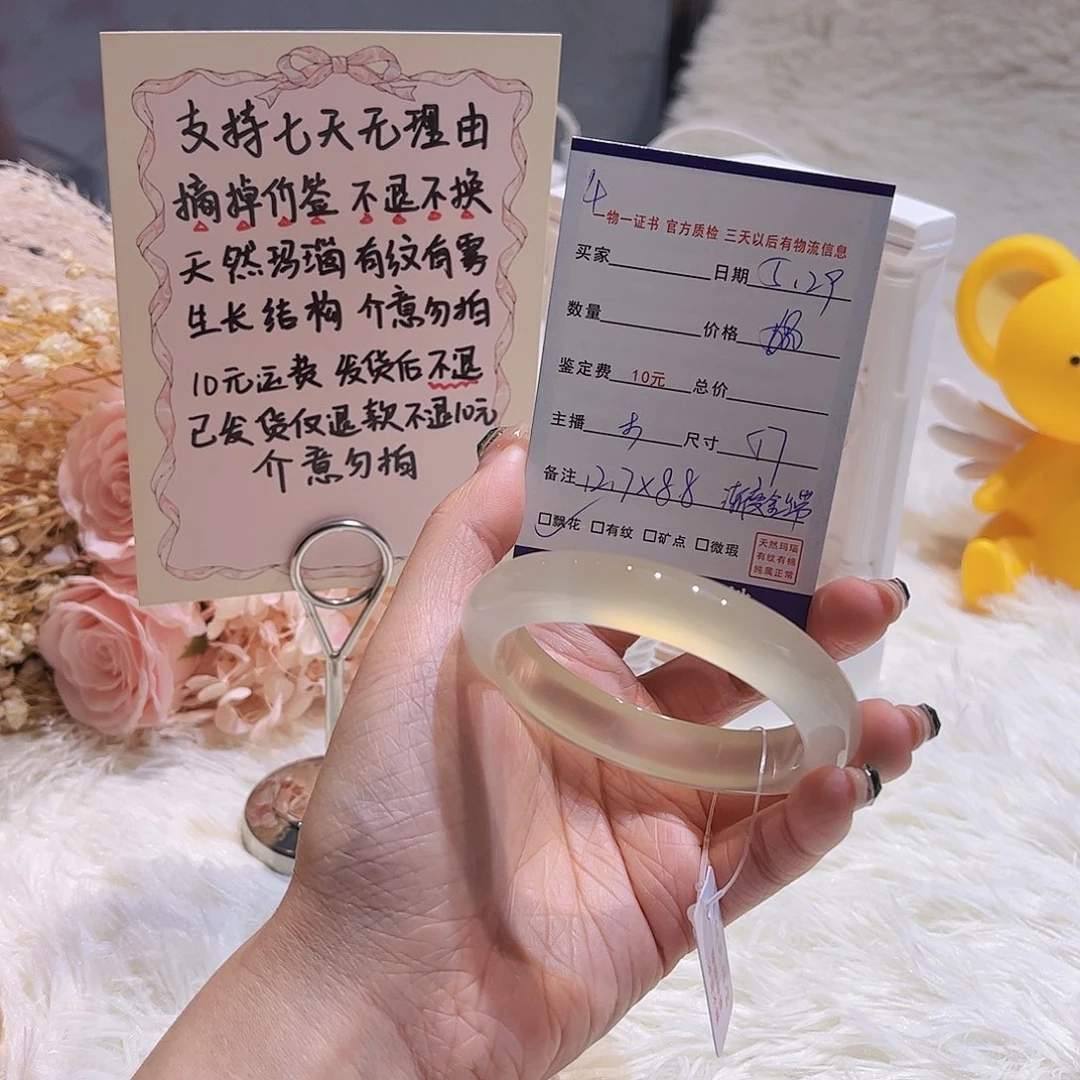 支持七天无理由
摘掉价签 不退不换
天然玛瑙 有纹有雾
生长结构 介意勿拍
10元运费 发货后不退
已发货仅退款不退10元
介意勿拍
4
一物一证书 官方质检 三天以后有物流信息
买家 日期 5.29
数量 价格
鉴定费 10元 总价
主播 尺寸 57
备注 12.7×8.8
飘花 有纹 矿点 微瑕
天然玛瑙
有纹有棉
纯属正常